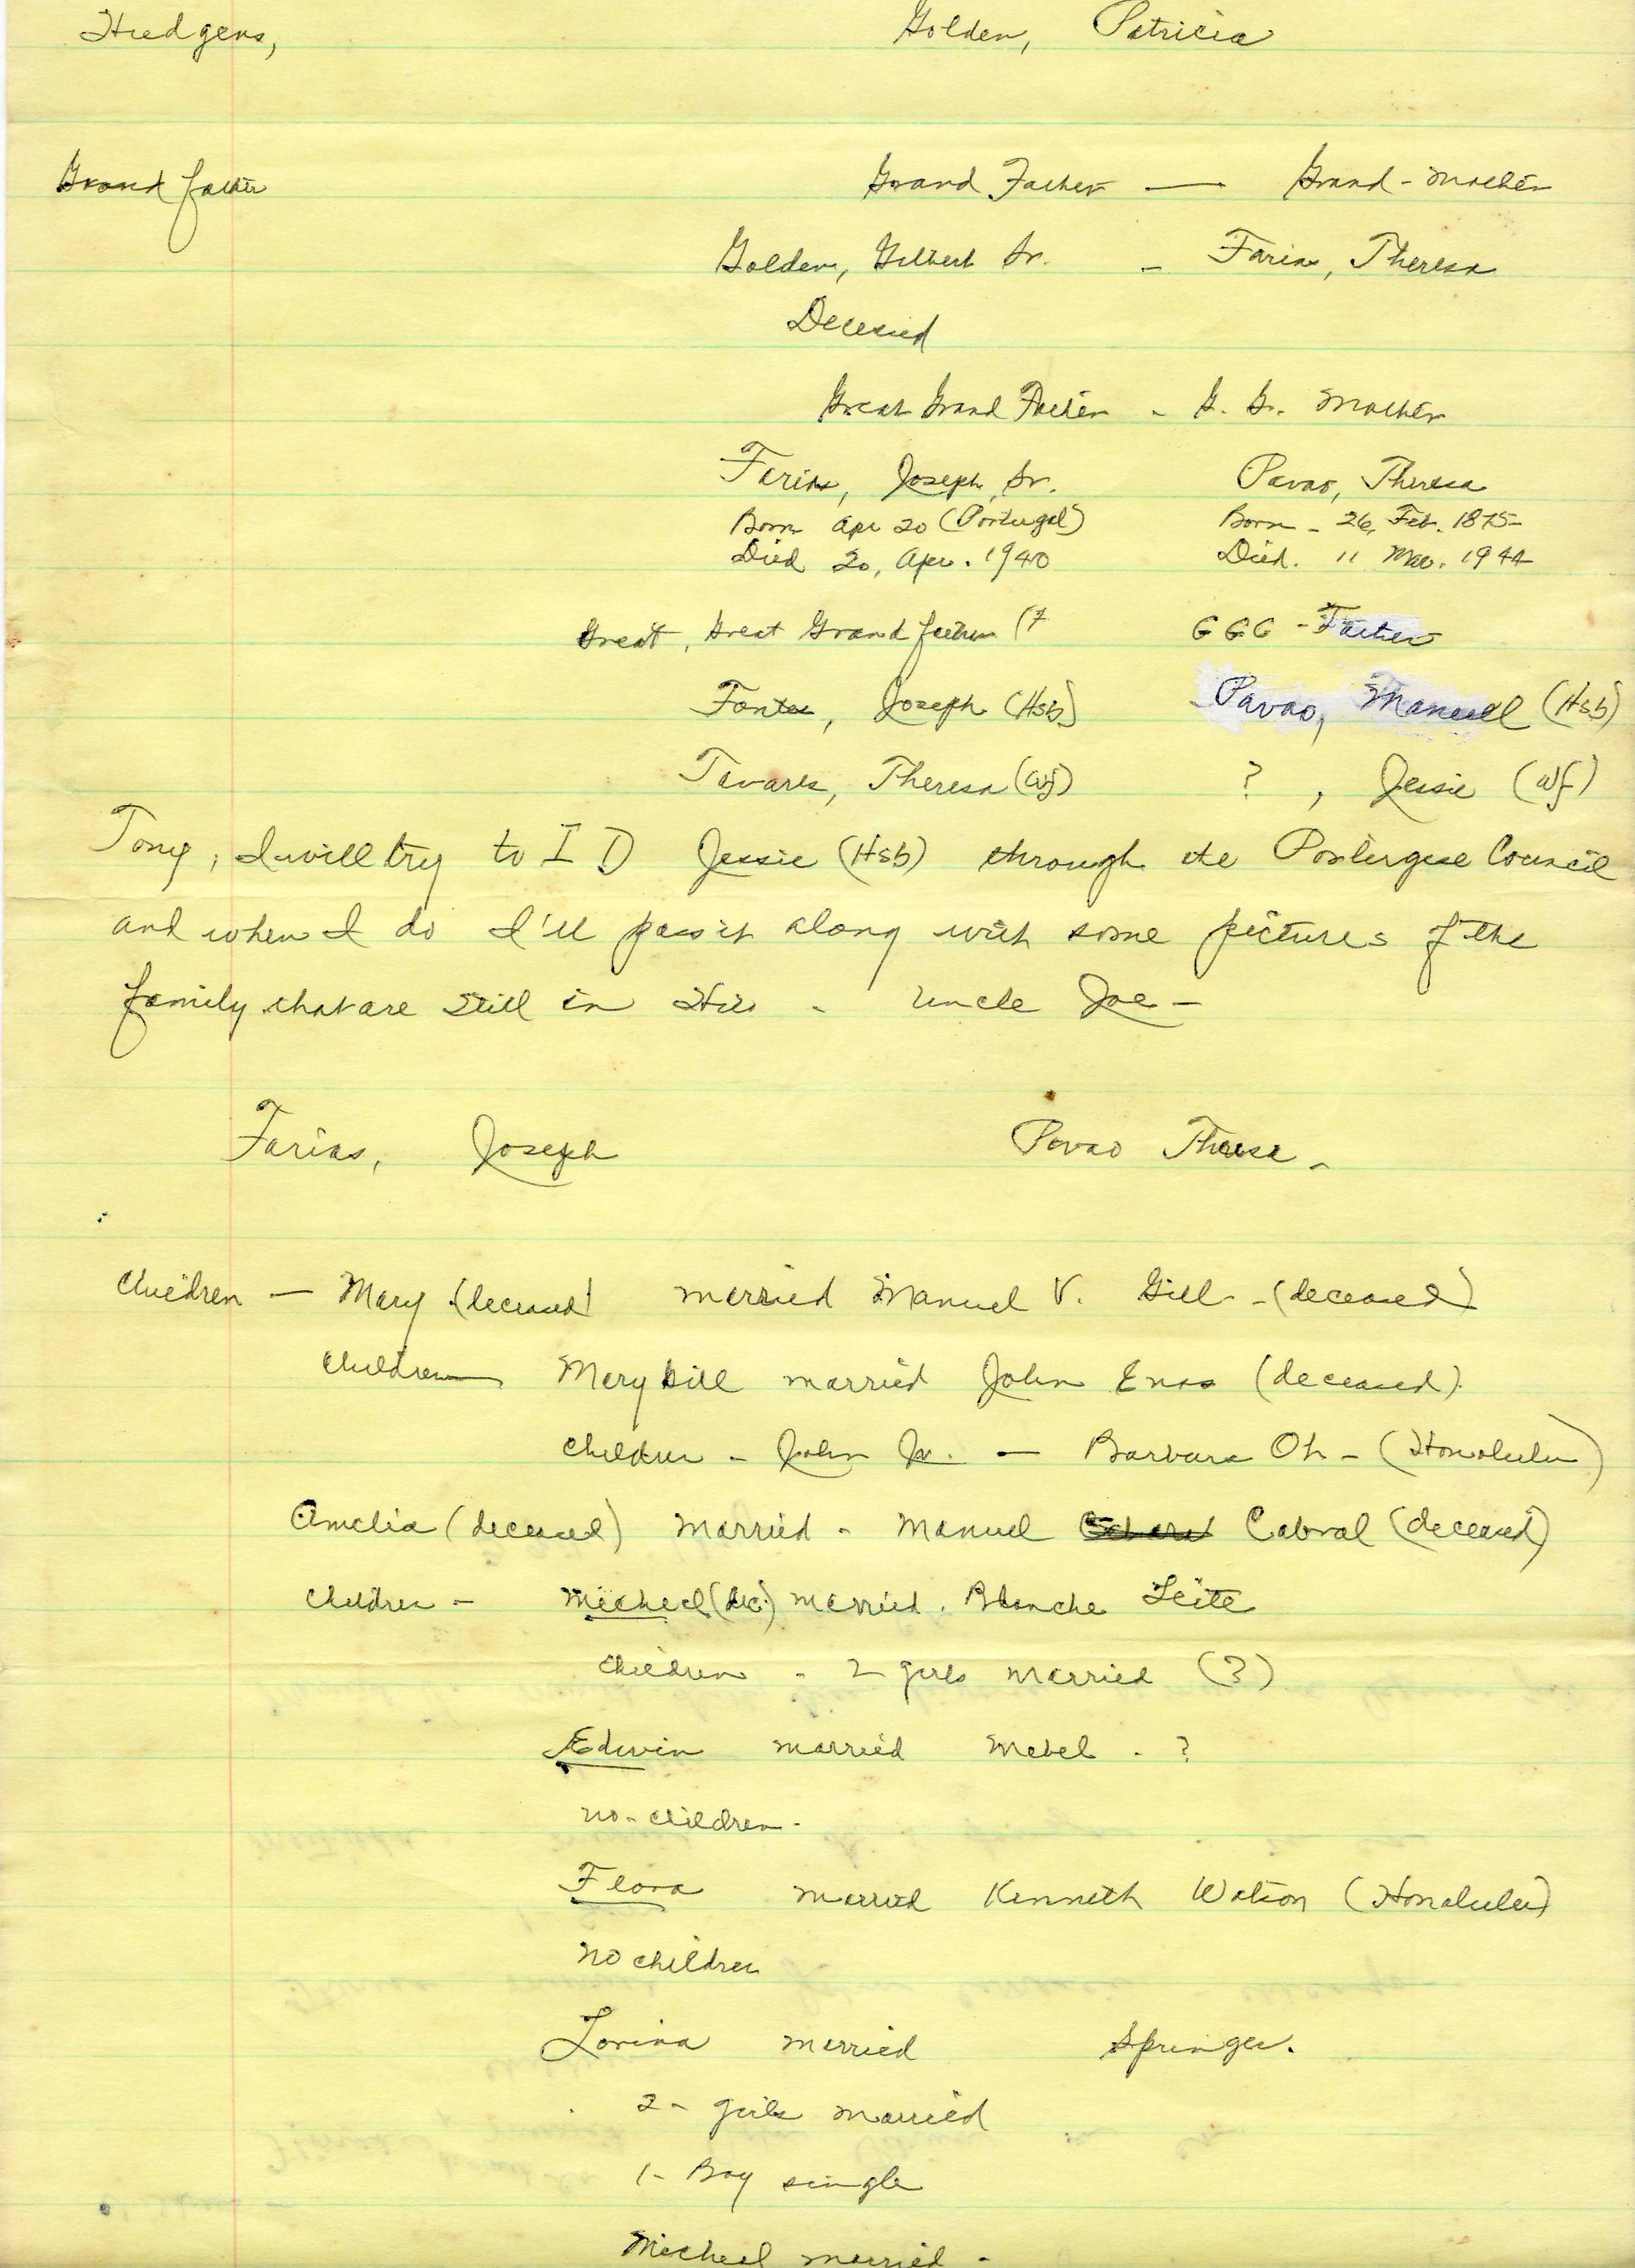 Hudgens, Golden, Patricia
Grand father Grand Father — Grand-Mother
Golden, Gilbert Sr. - Farias, Theresa
Deceased
Great Grand Father - G. Gr. Mother
Farias, Joseph, Sr. Pavao, Theresa
Born Apr 20 (Portugal) Born - 26, Feb. 1875
Died 20, Apr. 1940 Died. 11 Mar. 1944
Great, Great Grand father GGG - Father
Fontes, Joseph (Hsb) Pavao, Manuel (Hsb)
Tavares, Theresa (Wf) ? , Jessie (Wf)
Tony, I will try to I D Jessie (Hsb) through the Portugese Council
and when I do I'll pass it along with some pictures of the
family that are still in Hilo - Uncle Joe -
Farias, Joseph Pavao Theresa -
Children — Mary (deceased) married Manuel V. Gill - (deceased)
Children — Mary Gill married John Enos (deceased).
Children - John Jr. — Barbara Oh - (Honolulu)
Amelia (deceased) married - Manuel Cabral (deceased)
Children - Micheal (dec.) married. Blanche Leite
Children - 2 girls married (?)
Edwin married Mabel - ?
no - children -
Flora married Kenneth Watson (Honolulu)
No children
Lorina married Springer.
2 - girls married
1 - Boy single
Micheal married -